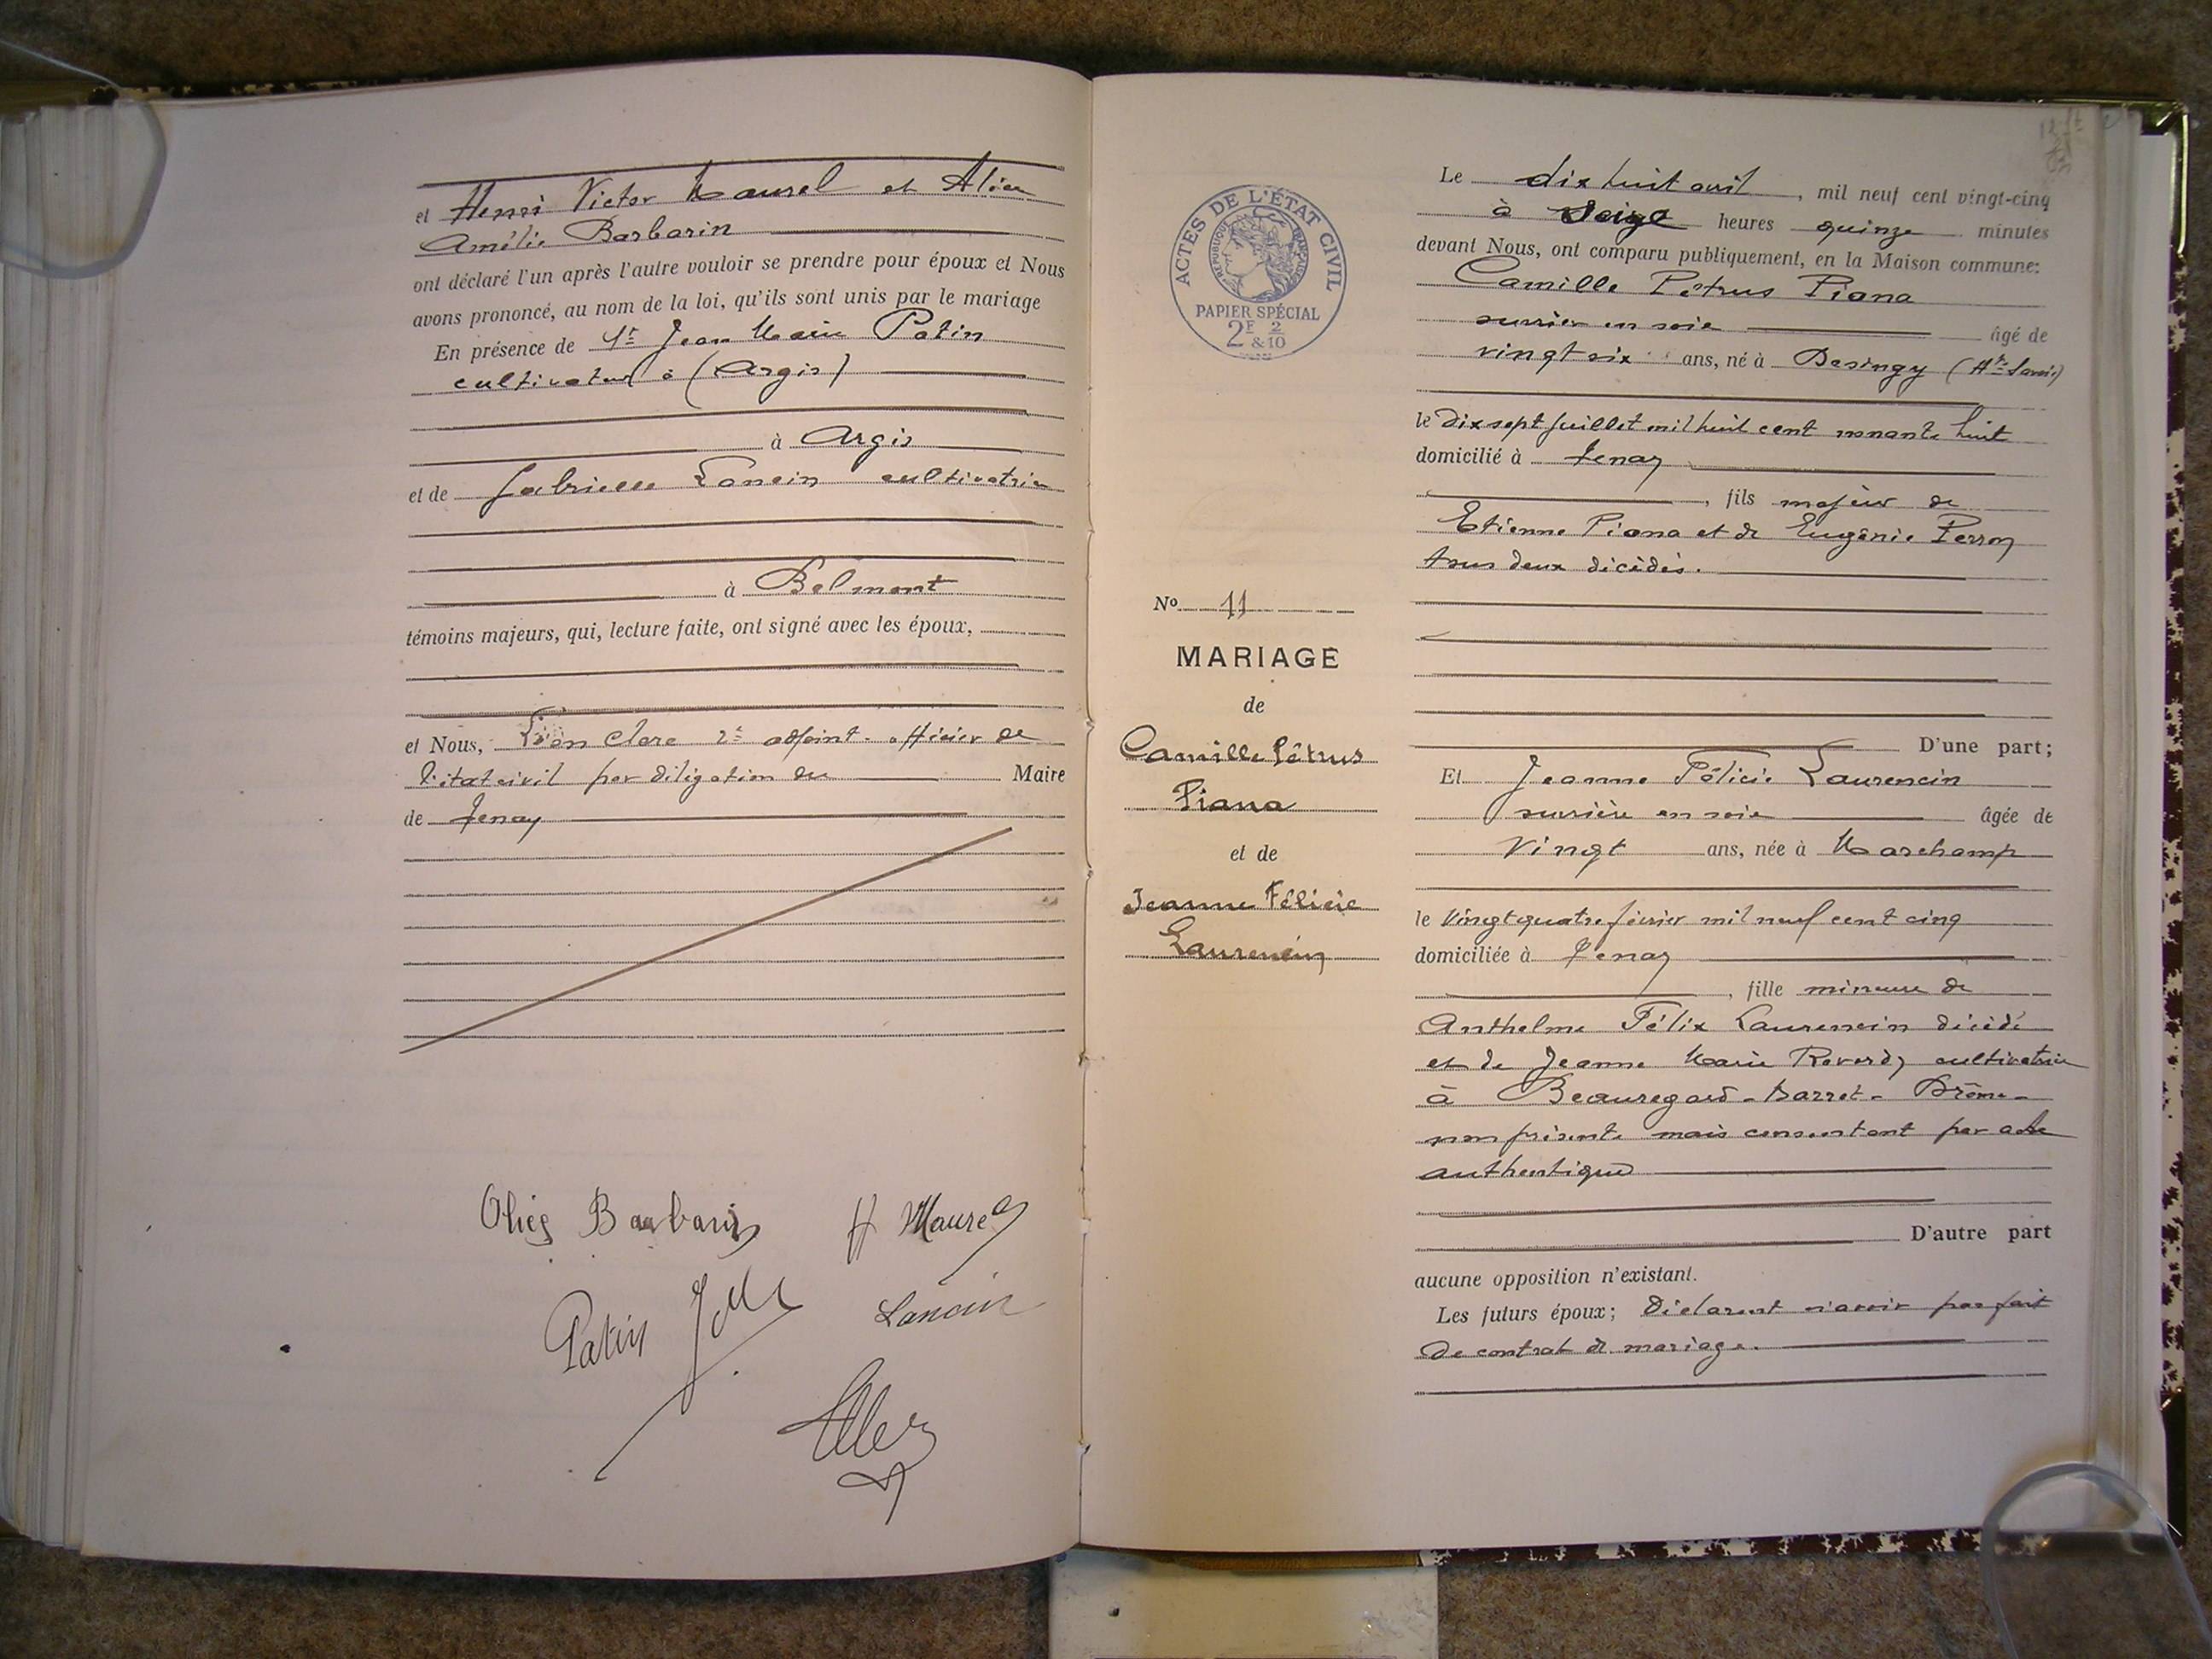 et Henri Victor Maurel et Alice
Amélie Barbarin
ont déclaré l'un après l'autre vouloir se prendre pour époux et Nous
avons prononcé, au nom de la loi, qu'ils sont unis par le mariage
En présence de Jean Marie Patin
cultivateur à (Argis)
à Argis
et de Gabrielle Lancin cultivatrice
à Belmont
témoins majeurs, qui, lecture faite, ont signé avec les époux,
et Nous, Léon Clerc 2e adjoint officier de
l'état civil par délégation du Maire
de Tenay
Alice Barbarin H Maurel
Patin JM Lancin
ACTES DE L'ÉTAT CIVIL
RÉPUBLIQUE FRANÇAISE
PAPIER SPÉCIAL
2F 2/10
&10
No 11
MARIAGE
de
Camille Pétrus
Piana
et de
Jeanne Félicie
Laurencin
Le dix huit avril, mil neuf cent vingt-cinq
à seize heures quinze minutes
devant Nous, ont comparu publiquement, en la Maison commune:
Camille Pétrus Piana
ouvrier en soie âgé de
vingt six ans, né à Desingy (Hte Savoie)
le dix sept juillet mil huit cent nonante huit
domicilié à Tenay
, fils majeur de
Etienne Piana et de Eugénie Perron
tous deux décédés.
D'une part;
Et Jeanne Félicie Laurencin
ouvrière en soie âgée de
Vingt ans, née à Marchamp
le vingt quatre février mil neuf cent cinq
domiciliée à Tenay
, fille mineure de
Anthelme Félix Laurencin décédé
et de Jeanne Marie Reverdy cultivatrice
à Beauregard-Barret-Drôme-
non présente mais consentant par acte
authentique
D'autre part
aucune opposition n'existant.
Les futurs époux; déclarent n'avoir pas fait
de contrat de mariage.